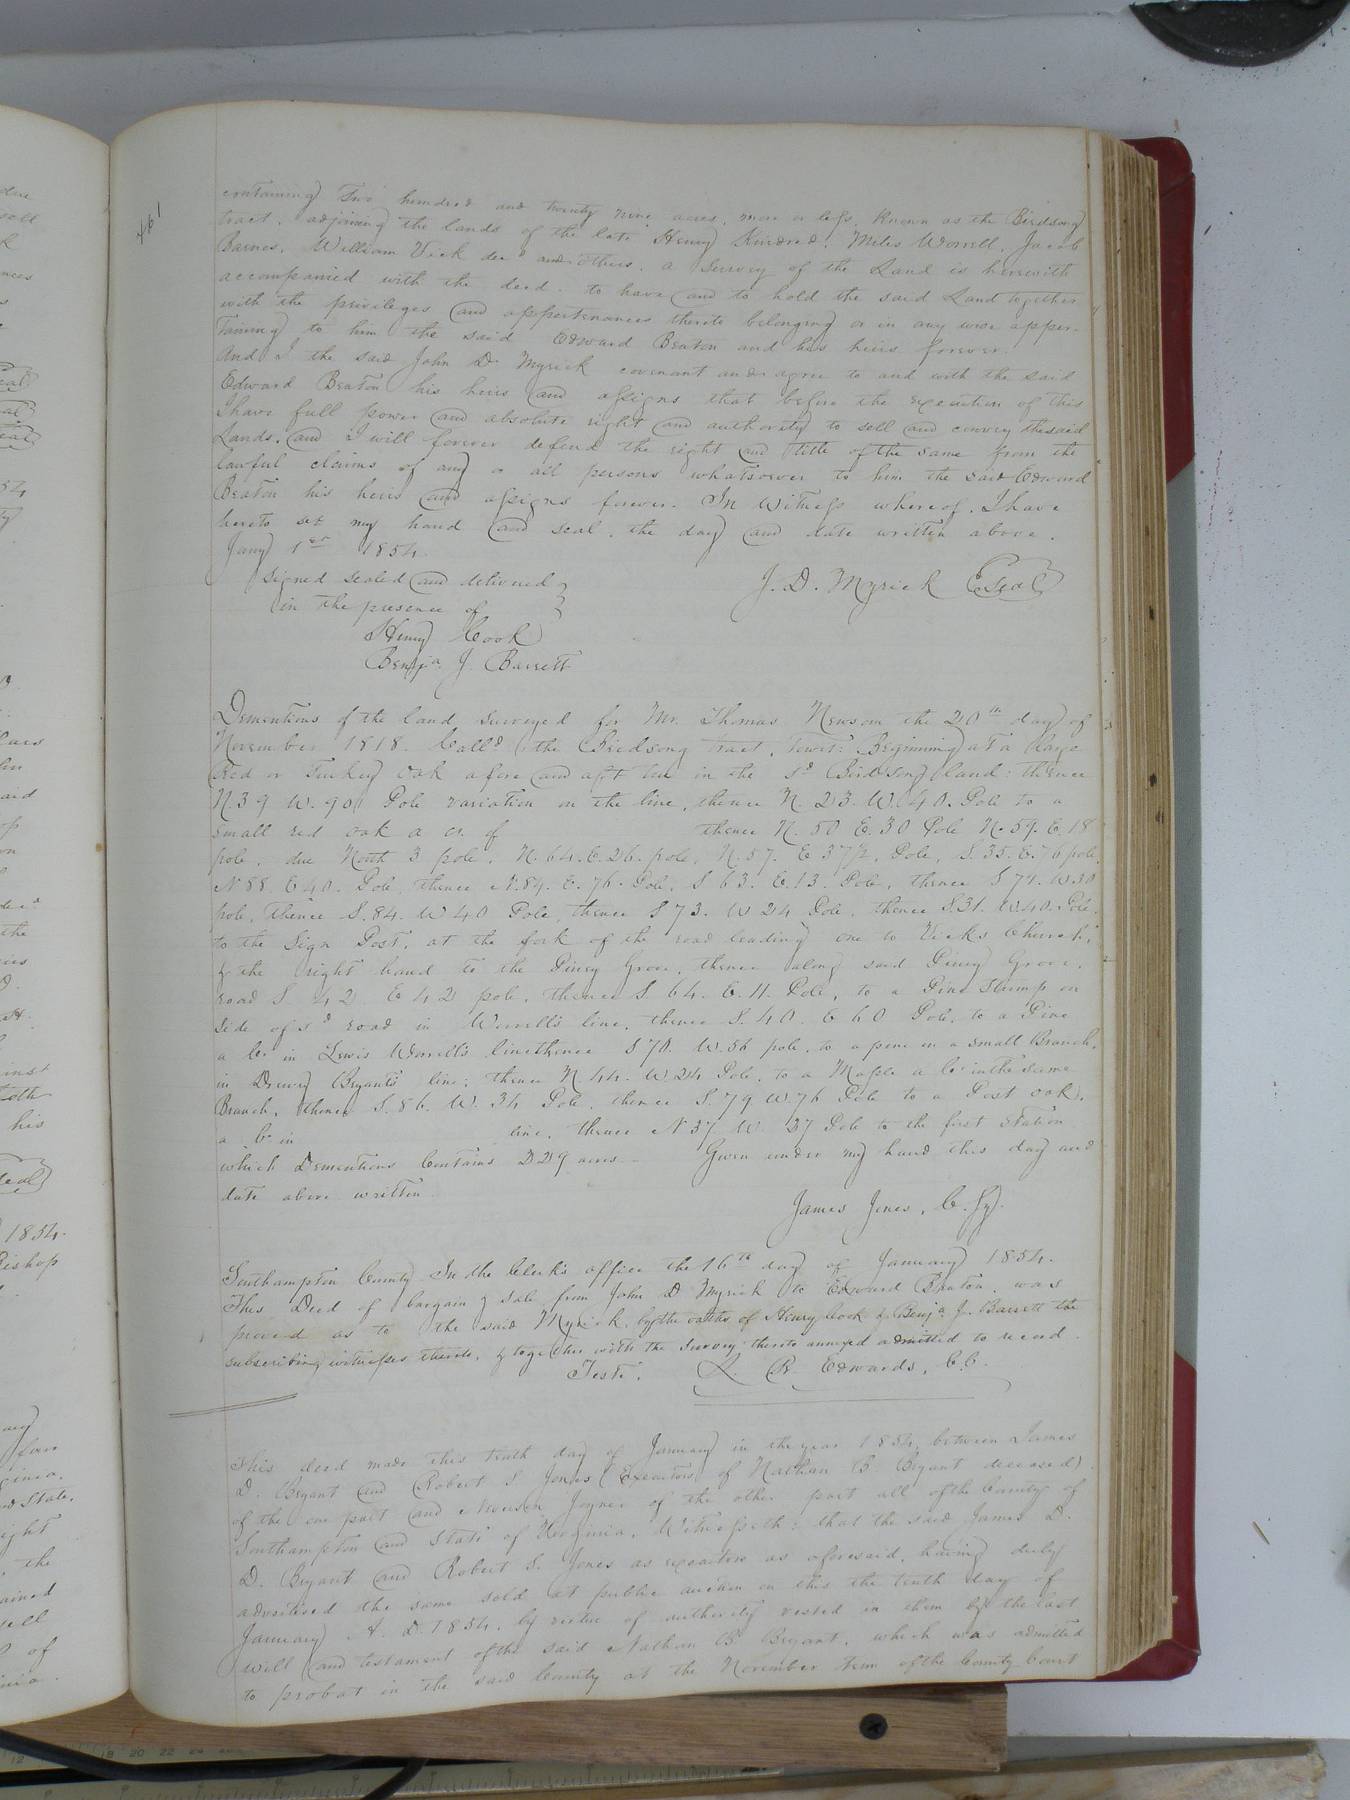 461
containing Two hundred and twenty nine acres, more or less, known as the Birdsong
tract, adjoining the lands of the late Henry Kindred, Miles Worrell, Jacob
Barnes, William Vick decd and others, a survey of the Land is herewith
accompanied with the deed. to have and to hold the said Land together
with the privileges and appertenances thereto belonging or in any wise apper-
taining to him the said Edward Beaton and his heirs forever.
And I the said John D. Myrick covenant and agree to and with the said
Edward Beaton his heirs and assigns that before the execution of this
I have full power and absolute right and authority to sell and convey the said
Lands, and I will forever defend the right and title of the same from the
lawful claims of any or all persons whatsoever to him the said Edward
Beaton his heirs and assigns forever. In Witness whereof, I have
hereto set my hand and seal, the day and date written above.
Jany 1st 1854.
Signed sealed and delivered
in the presence of
J. D. Myrick Seal
Henry Cook
Benja. J. Barrett
Dementions of the land surveyed for Mr. Thomas Newsom the 20th day of
November 1818. Calld the Birdsong tract, towit: Beginning at a large
Red or Turkey oak a fore and aft tree in the sd Birdsong land: thence
N. 39 W. 90 Pole variation on the line, thence N. 23. W. 40. Pole to a
small red oak a cr. of thence N. 50 E. 30 Pole N. 59. E. 18
pole, due North 3 pole, N. 64. E. 26. pole, N. 57. E 37½, Pole, S. 35. E. 76 pole,
N 88. E 40. Pole, thence N. 84. E. 76. Pole, S 63. E. 13. Pole, thence S 74. W. 30
pole, thence S. 84. W 40 Pole, thence S 73. W 24 Pole, thence S. 31. W. 40. Pole,
to the Sign Post, at the fork of the road leading one to Vicks Church,
& the right hand to the Piney Grove, thence along said Piney Grove,
road S. 42 E 42 pole, thence S. 64. E. 11. Pole, to a Pine stump on
side of sd road in Worrell's line, thence S. 40. E 60 Pole, to a Pine
a C. in Lewis Worrell's line thence S 70. W. 56 pole, to a pine in a small Branch,
in Drewry Bryant's line; thence N. 44. W 24 Pole, to a Maple a C in the same
Branch, thence S. 86. W. 34 Pole, thence S. 79 W. 76 Pole to a Post oak,
a C. in line, thence N 37 W. 37 Pole to the first station
which Dementions Contains 229 acres. Given under my hand this day and
date above written
James Jones, C. Sy.
Southampton County In the Clerk's office the 16th day of January 1854.
This Deed of bargain & sale from John D Myrick to Edward Beaton, was
proved as to the said Myrick, by the oaths of Henry Cook & Benja. J. Barrett the
subscribing witnesses thereto, & together with the Survey thereto annexed admitted to record.
Teste. L. R. Edwards, C.C.
This deed made this tenth day of January in the year 1854, between James
D. Bryant and Robert S Jones (Executors of Nathan B Bryant deceased)
of the one part and Newsom Joyner of the other part all of the County of
Southampton and State of Virginia, Witnesseth: that the said James D.
D. Bryant and Robert S. Jones as executors as aforesaid, having duly
advertised the same sold at public auction on this the tenth day of
January A. D. 1854, by virtue of authority vested in them by the last
will and testament of the said Nathan B. Bryant, which was admitted
to probat in the said County at the November term of the County Court